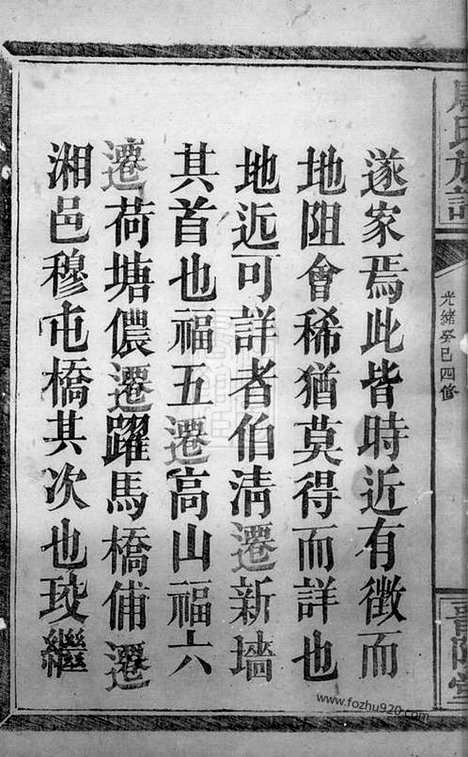 氏族譜
光緒癸巳四修
遂家焉此皆時近有徵而
地阻會稀猶莫得而詳也
地近可詳者伯清遷新墻
其首也福五遷高山福六
遷荷塘儂遷躍馬橋俌遷
湘邑穆屯橋其次也玟繼
www.fozhu920.com